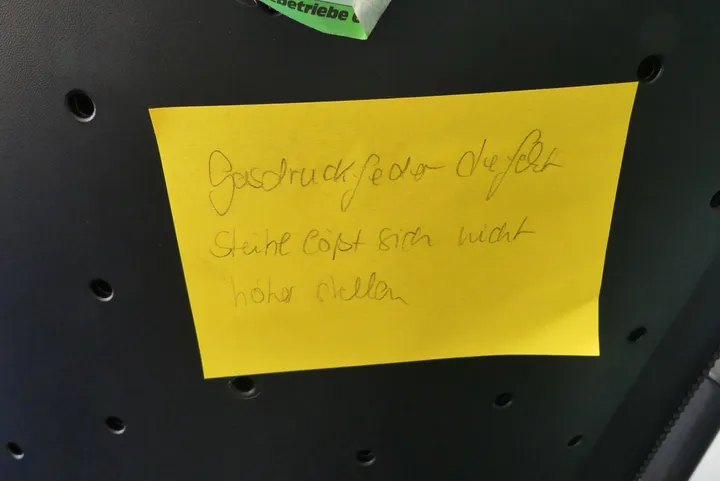 betriebe
Gasdruckfeder defekt
Stühl läßt sich nicht
höher stellen